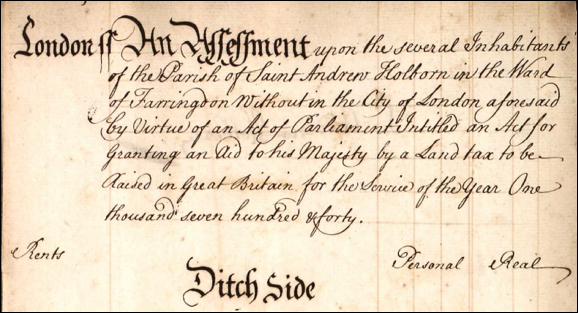 London ss An Assessment upon the several Inhabitants
of the Parish of Saint Andrew Holborn in the Ward
of Farringdon Without in the City of London aforesaid
by Virtue of an Act of Parliament Intitled an Act for
Granting an Aid to his Majesty by a Land tax to be
Raised in Great Britain for the Service of the Year One
thousand seven hundred & forty.
Rents Personal Real
Ditch Side